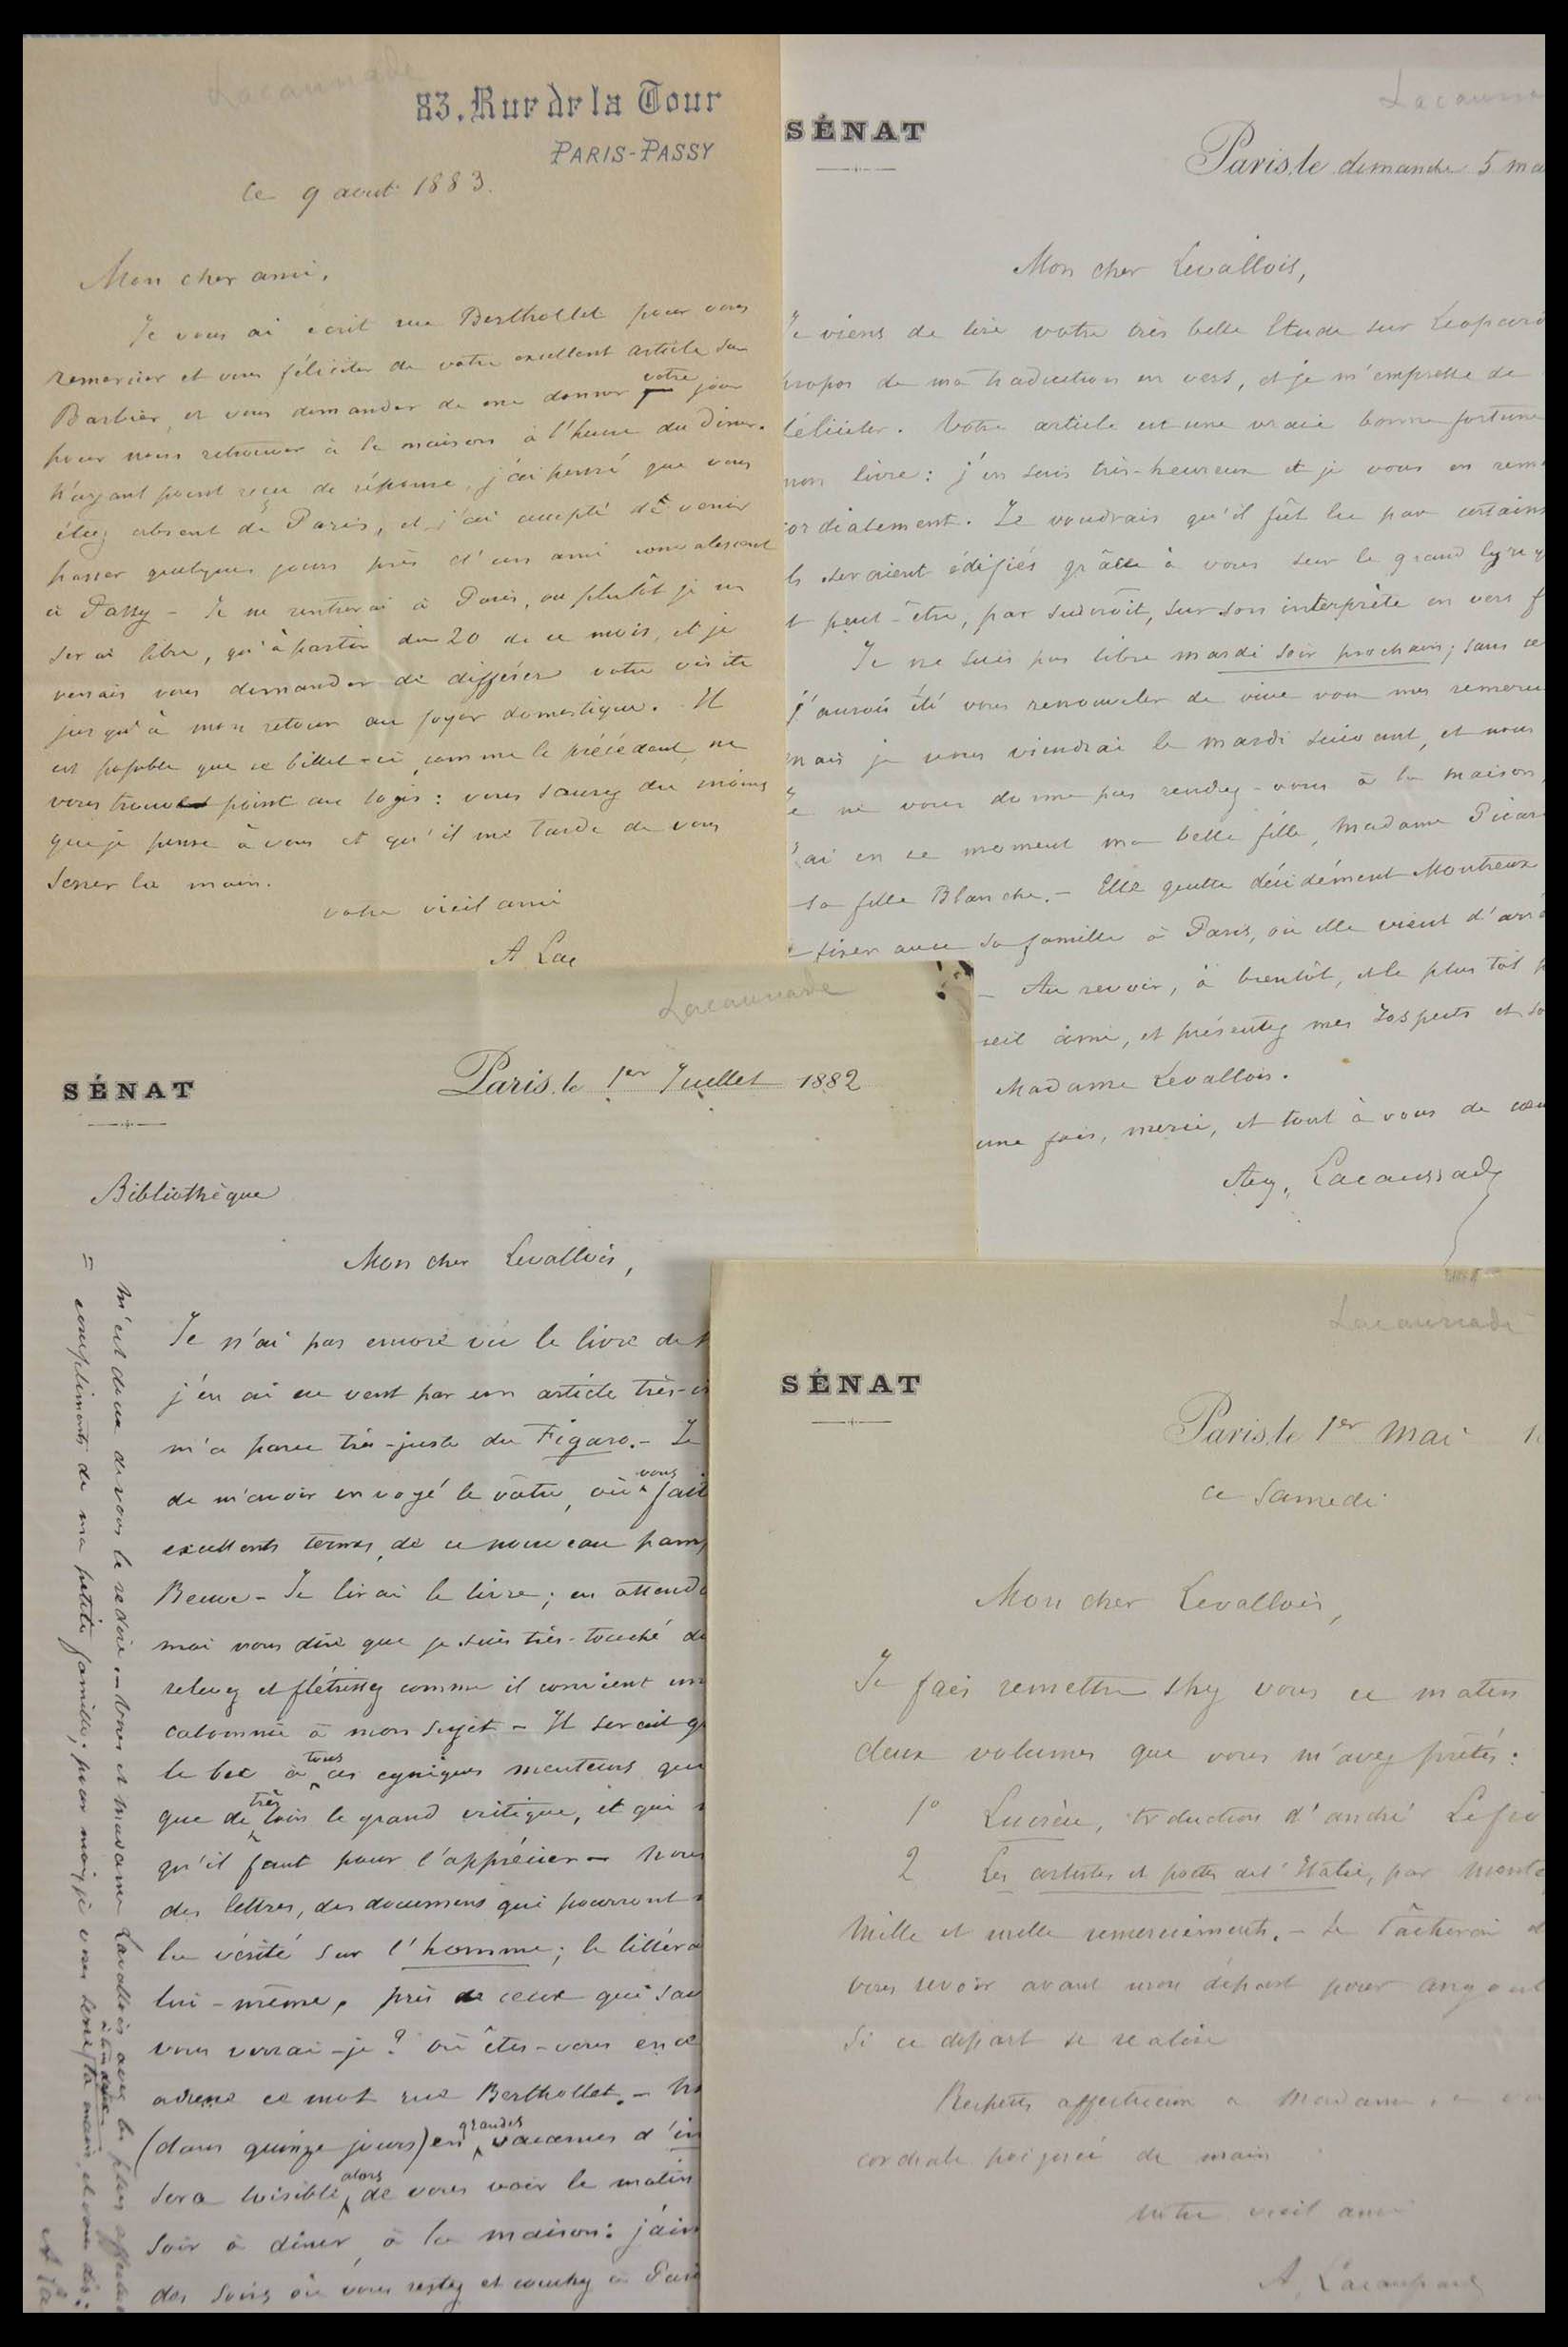 Lacaussade
83. Rue de la Tour
PARIS-PASSY
ce 9 aout 1883.
Mon cher ami,
Je vous ai écrit rue Berthollet pour vous
remercier et vous féliciter de votre excellent article sur
Barbier, et vous demander de me donner votre jour
pour nous retrouver à la maison à l'heure du diner.
N'ayant point reçu de réponse, j'ai pensé que vous
étiez absent de Paris, et j'ai accepté de venir
passer quelques jours près d'un ami convalescent
à Passy - Je ne rentrerai à Paris, ou plutôt je ne
serai libre, qu'à partir du 20 de ce mois, et je
venais vous demander de différer votre visite
jusqu'à mon retour au foyer domestique. Il
est possible que ce billet-ci, comme le précédent, ne
vous trouve point au logis: vous saurez du moins
que je pense à vous et qu'il me tarde de vous
serrer la main.
votre vieil ami
A Lac
Lacaussa
SÉNAT
Paris, le dimanche 5 ma
Mon cher Levallois,
Je viens de lire votre très belle Etude sur Leopard
propos de ma traduction en vers, et je m'empresse de
féliciter. Votre article est une vraie bonne fortune
mon livre: j'en suis très-heureux et je vous en rem
cordialement. Je voudrais qu'il fût lu par certains
ls seraient édifiés grâce à vous sur le grand lyriq
t peut-être, par surcroît, sur son interprète en vers f
Je ne suis pas libre mardi soir prochain; sans ce
j'aurais été vous renouveler de vive voix mes remerci
mais je vous viendrai le mardi suivant, et nous
e ne vous donne pas rendez-vous à la maison,
j'ai en ce moment ma belle fille, Madame Picar
sa fille Blanche. - Elle quitte décidément Montreux
fixer avec sa famille à Paris, où elle vient d'arri
- Au revoir, à bientôt, et le plus tôt p
ieil ami, et présentez mes respects et so
Madame Levallois.
une fois, merci, et tout à vous de cœu
Aug. Lacaussade
Lacaussade
SÉNAT
Paris, le 1er Juillet 1882
Bibliothèque
Mon cher Levallois,
Je n'ai pas encore vu le livre de
j'en ai eu vent par un article très-
m'a paru très-juste du Figaro. - Je
de m'avoir envoyé le vôtre, où vous fait
excellents termes, de ce nouveau pam
Beuve - Je lirai le livre; en attend
moi vous dire que je suis très-touché de
relevez et flétrissez comme il convient un
calomnie à mon sujet - Il serait
le bec à tous ces cyniques menteurs qui
que de très loin le grand critique, et qui
qu'il faut pour l'apprécier - nous
des lettres, des documens qui pourront
la vérité sur l'homme; le littéra
lui-même, près de ceux qui sav
vous verrai-je? Où êtes-vous en ce
adresse ce mot rue Berthollet. -
(dans quinze jours) en grandes vacances d'
sera loisible alors de vous voir le matin
soir à dîner, à la maison: j'aim
des soirs où vous restez et couchez à Paris
m'est doux de vous le redire - Vous et madame Levallois avez les plus affectueux
= compliments de ma petite famille; pour moi, je vous serre la main, et vous dis:
A La
Lacaussade
SÉNAT
Paris, le 1er Mai 1
ce Samedi
Mon cher Levallois,
Je fais remettre chez vous ce matin
deux volumes que vous m'avez prêtés:
1° Lucrèce, traduction d'André Lefè
2 Les artistes et poètes de l'Italie, par Mont
Mille et mille remerciements. - Je tâcherai d
vous revoir avant mon départ pour Angoul
si ce départ se réalise
Respects affectueux à Madame, à vo
cordiale poignée de main
votre vieil ami
A. Lacaussade